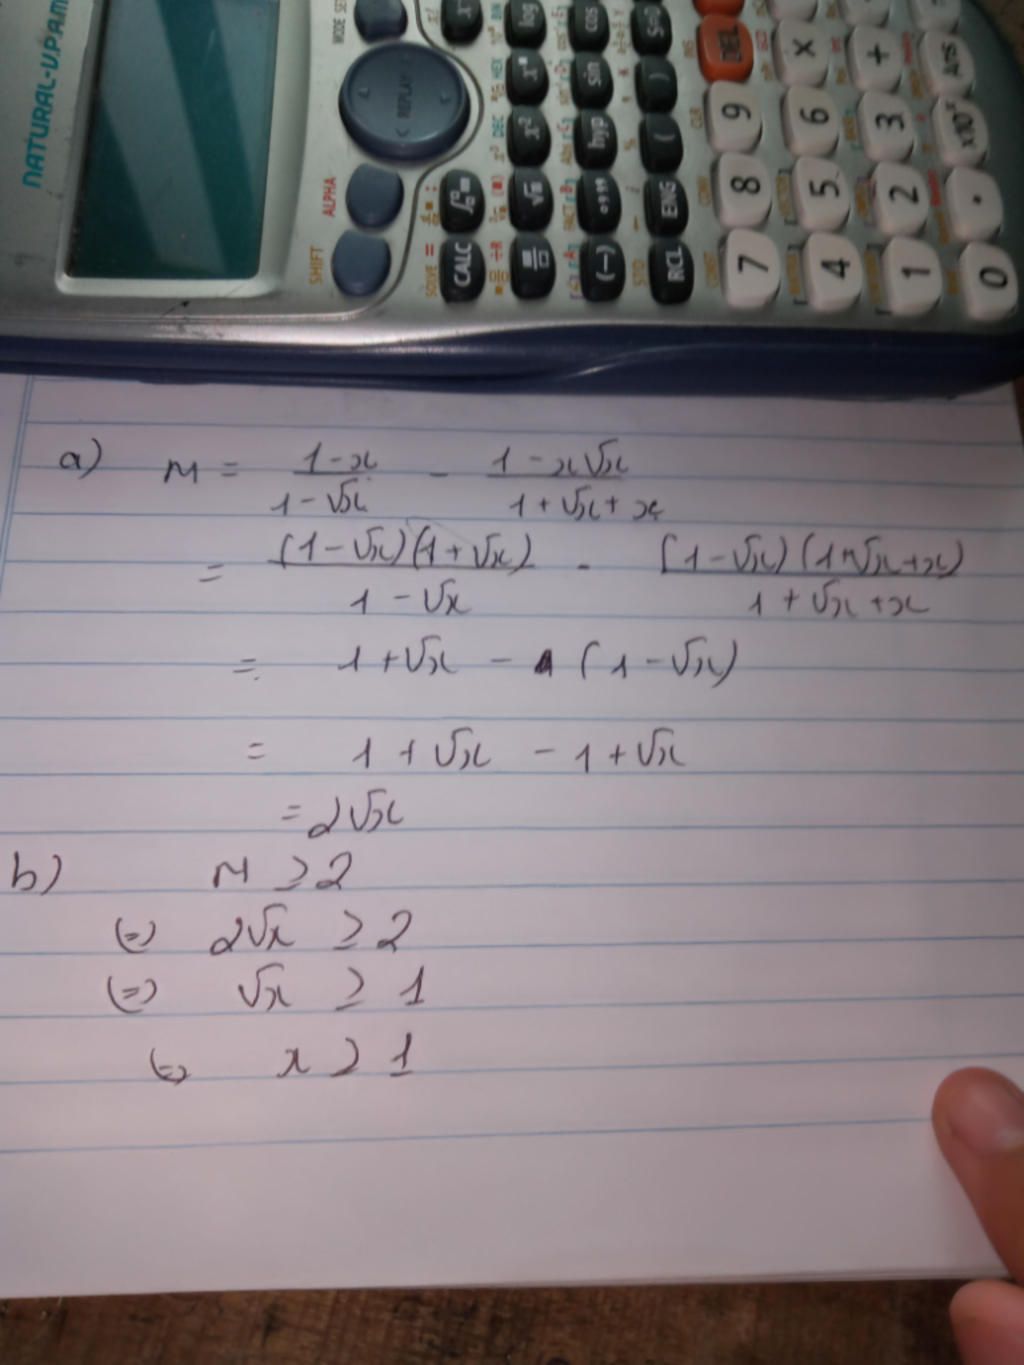 NATURAL-V.P.A.M
SHIFT ALPHA REPLAY MODE
SOLVE
CALC
log
x²
hyp sin cos
(-) ENG
RCL ( )
7 8 9 DEL
4 5 6 ×
1 2 3 +
0 . ×10ˣ Ans
a) M = (1-x)/(1-√x) - (1-x√x)/(1+√x+x)
= ((1-√x)(1+√x))/(1-√x) - ((1-√x)(1+√x+x))/(1+√x+x)
= 1+√x - (1-√x)
= 1+√x - 1+√x
= 2√x
b) M ≥ 2
(=) 2√x ≥ 2
(=) √x ≥ 1
(=) x ≥ 1